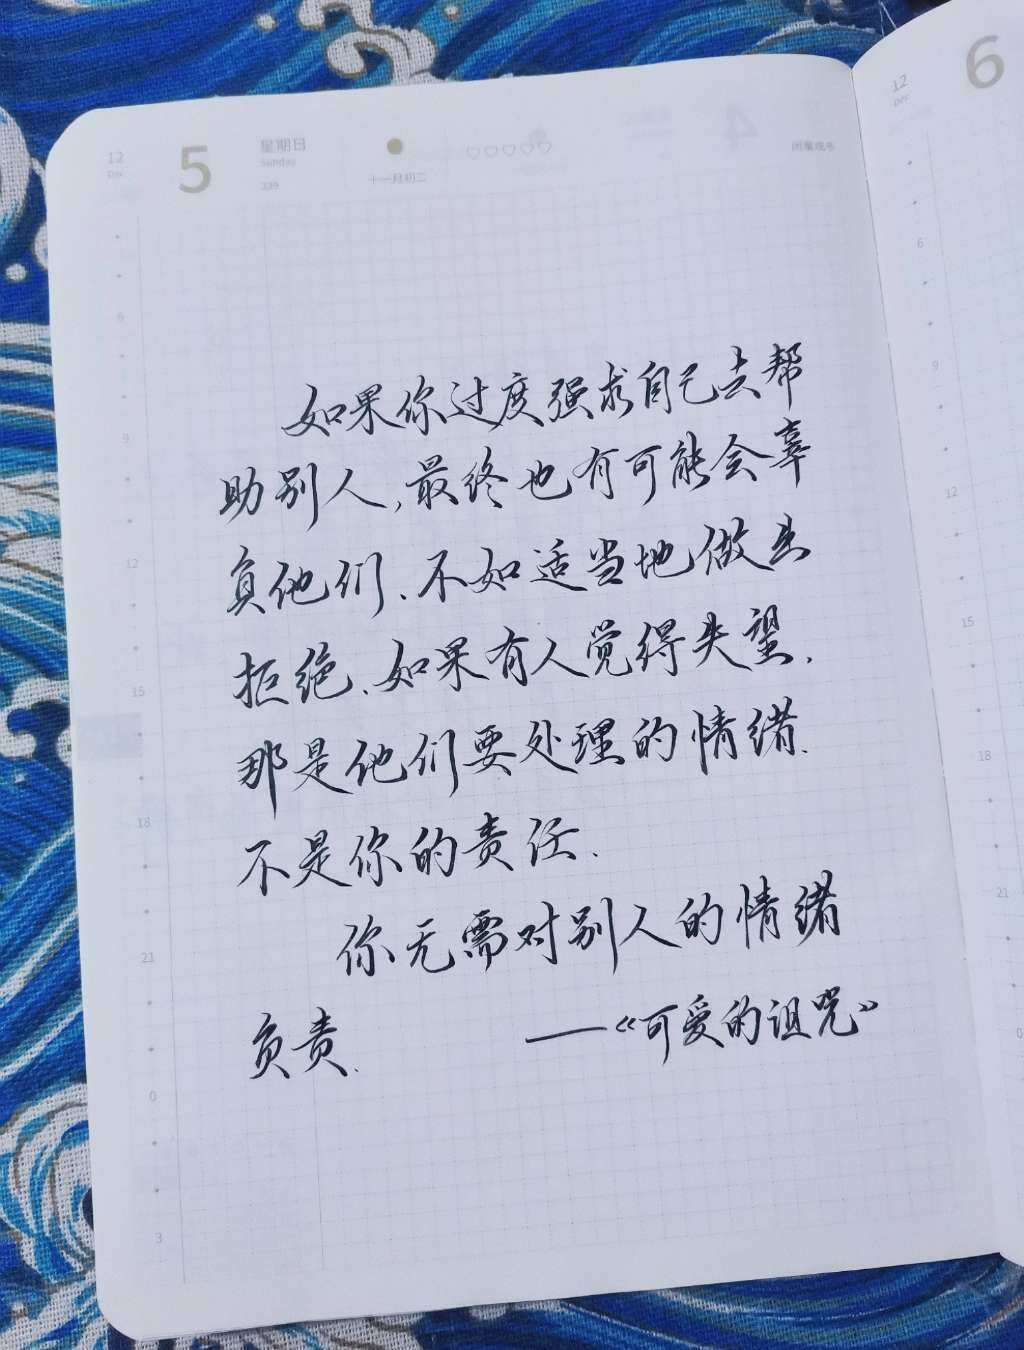 12
Dec
5
星期日
Sunday
339
十一月初二
12
Dec
6
如果你过度强求自己去帮
助别人,最终也有可能会辜
负他们、不如适当地做出
拒绝、如果有人觉得失望,
那是他们要处理的情绪.
不是你的责任.
你无需对别人的情绪
负责.
——《可爱的诅咒》
6
9
12
15
18
21
0
3
6
9
12
15
18
21
0